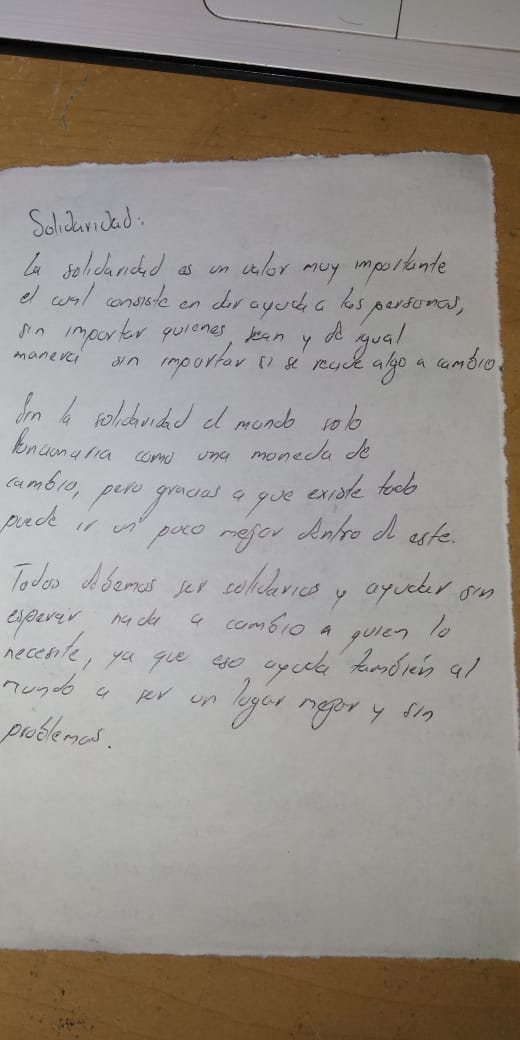 Solidaridad:.
La solidaridad es un valor muy importante
el cual consiste en dar ayuda a las personas,
sin importar quienes sean y de igual
manera sin importar si se recive algo a cambio.
Sin la solidaridad el mundo solo
funcionaria como una moneda de
cambio, pero gracias a que existe todo
puede ir un poco mejor dentro de este.
Todos debemos ser solidarios y ayudar sin
esperar nada a cambio a quien lo
necesite, ya que eso ayuda también al
mundo a ser un lugar mejor y sin
problemas.